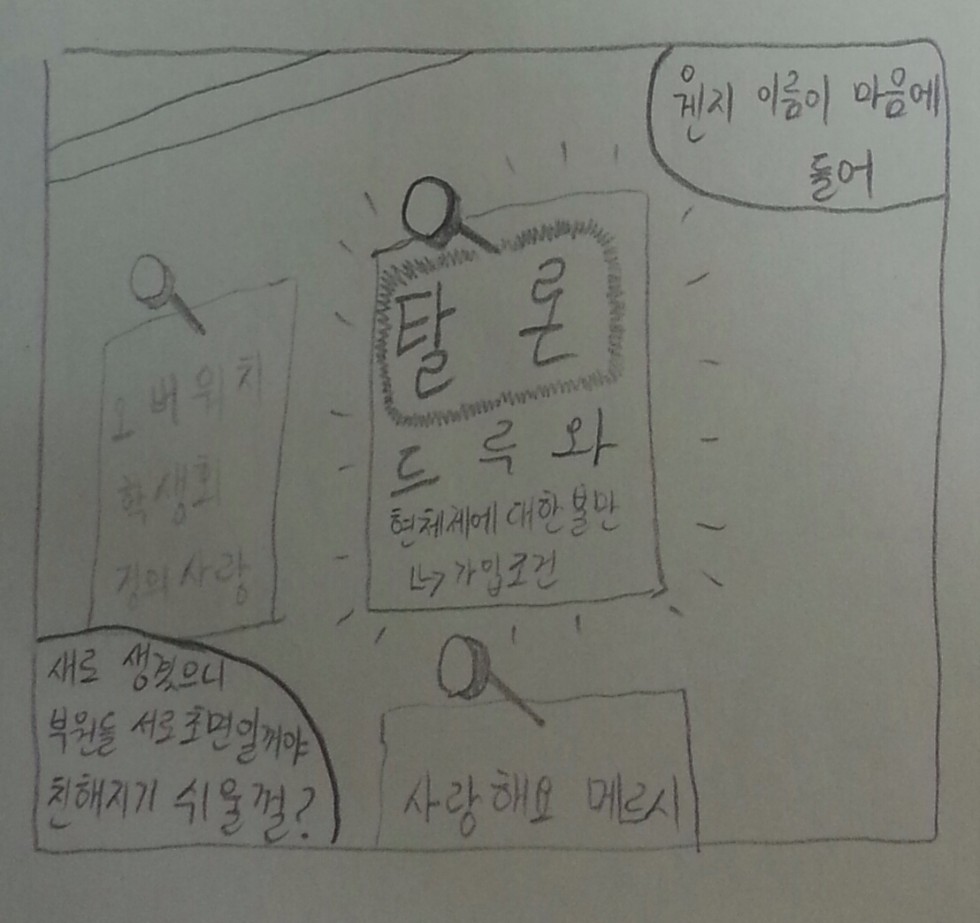 웬지 이름이 마음에
들어
탈론
드루와
현체제에 대한 불만
↳ 가입조건
오버워치
학생회
정의 사랑
새로 생겼으니
부원들 서로 초면일꺼야
친해지기 쉬울껄?
사랑해요 메르시